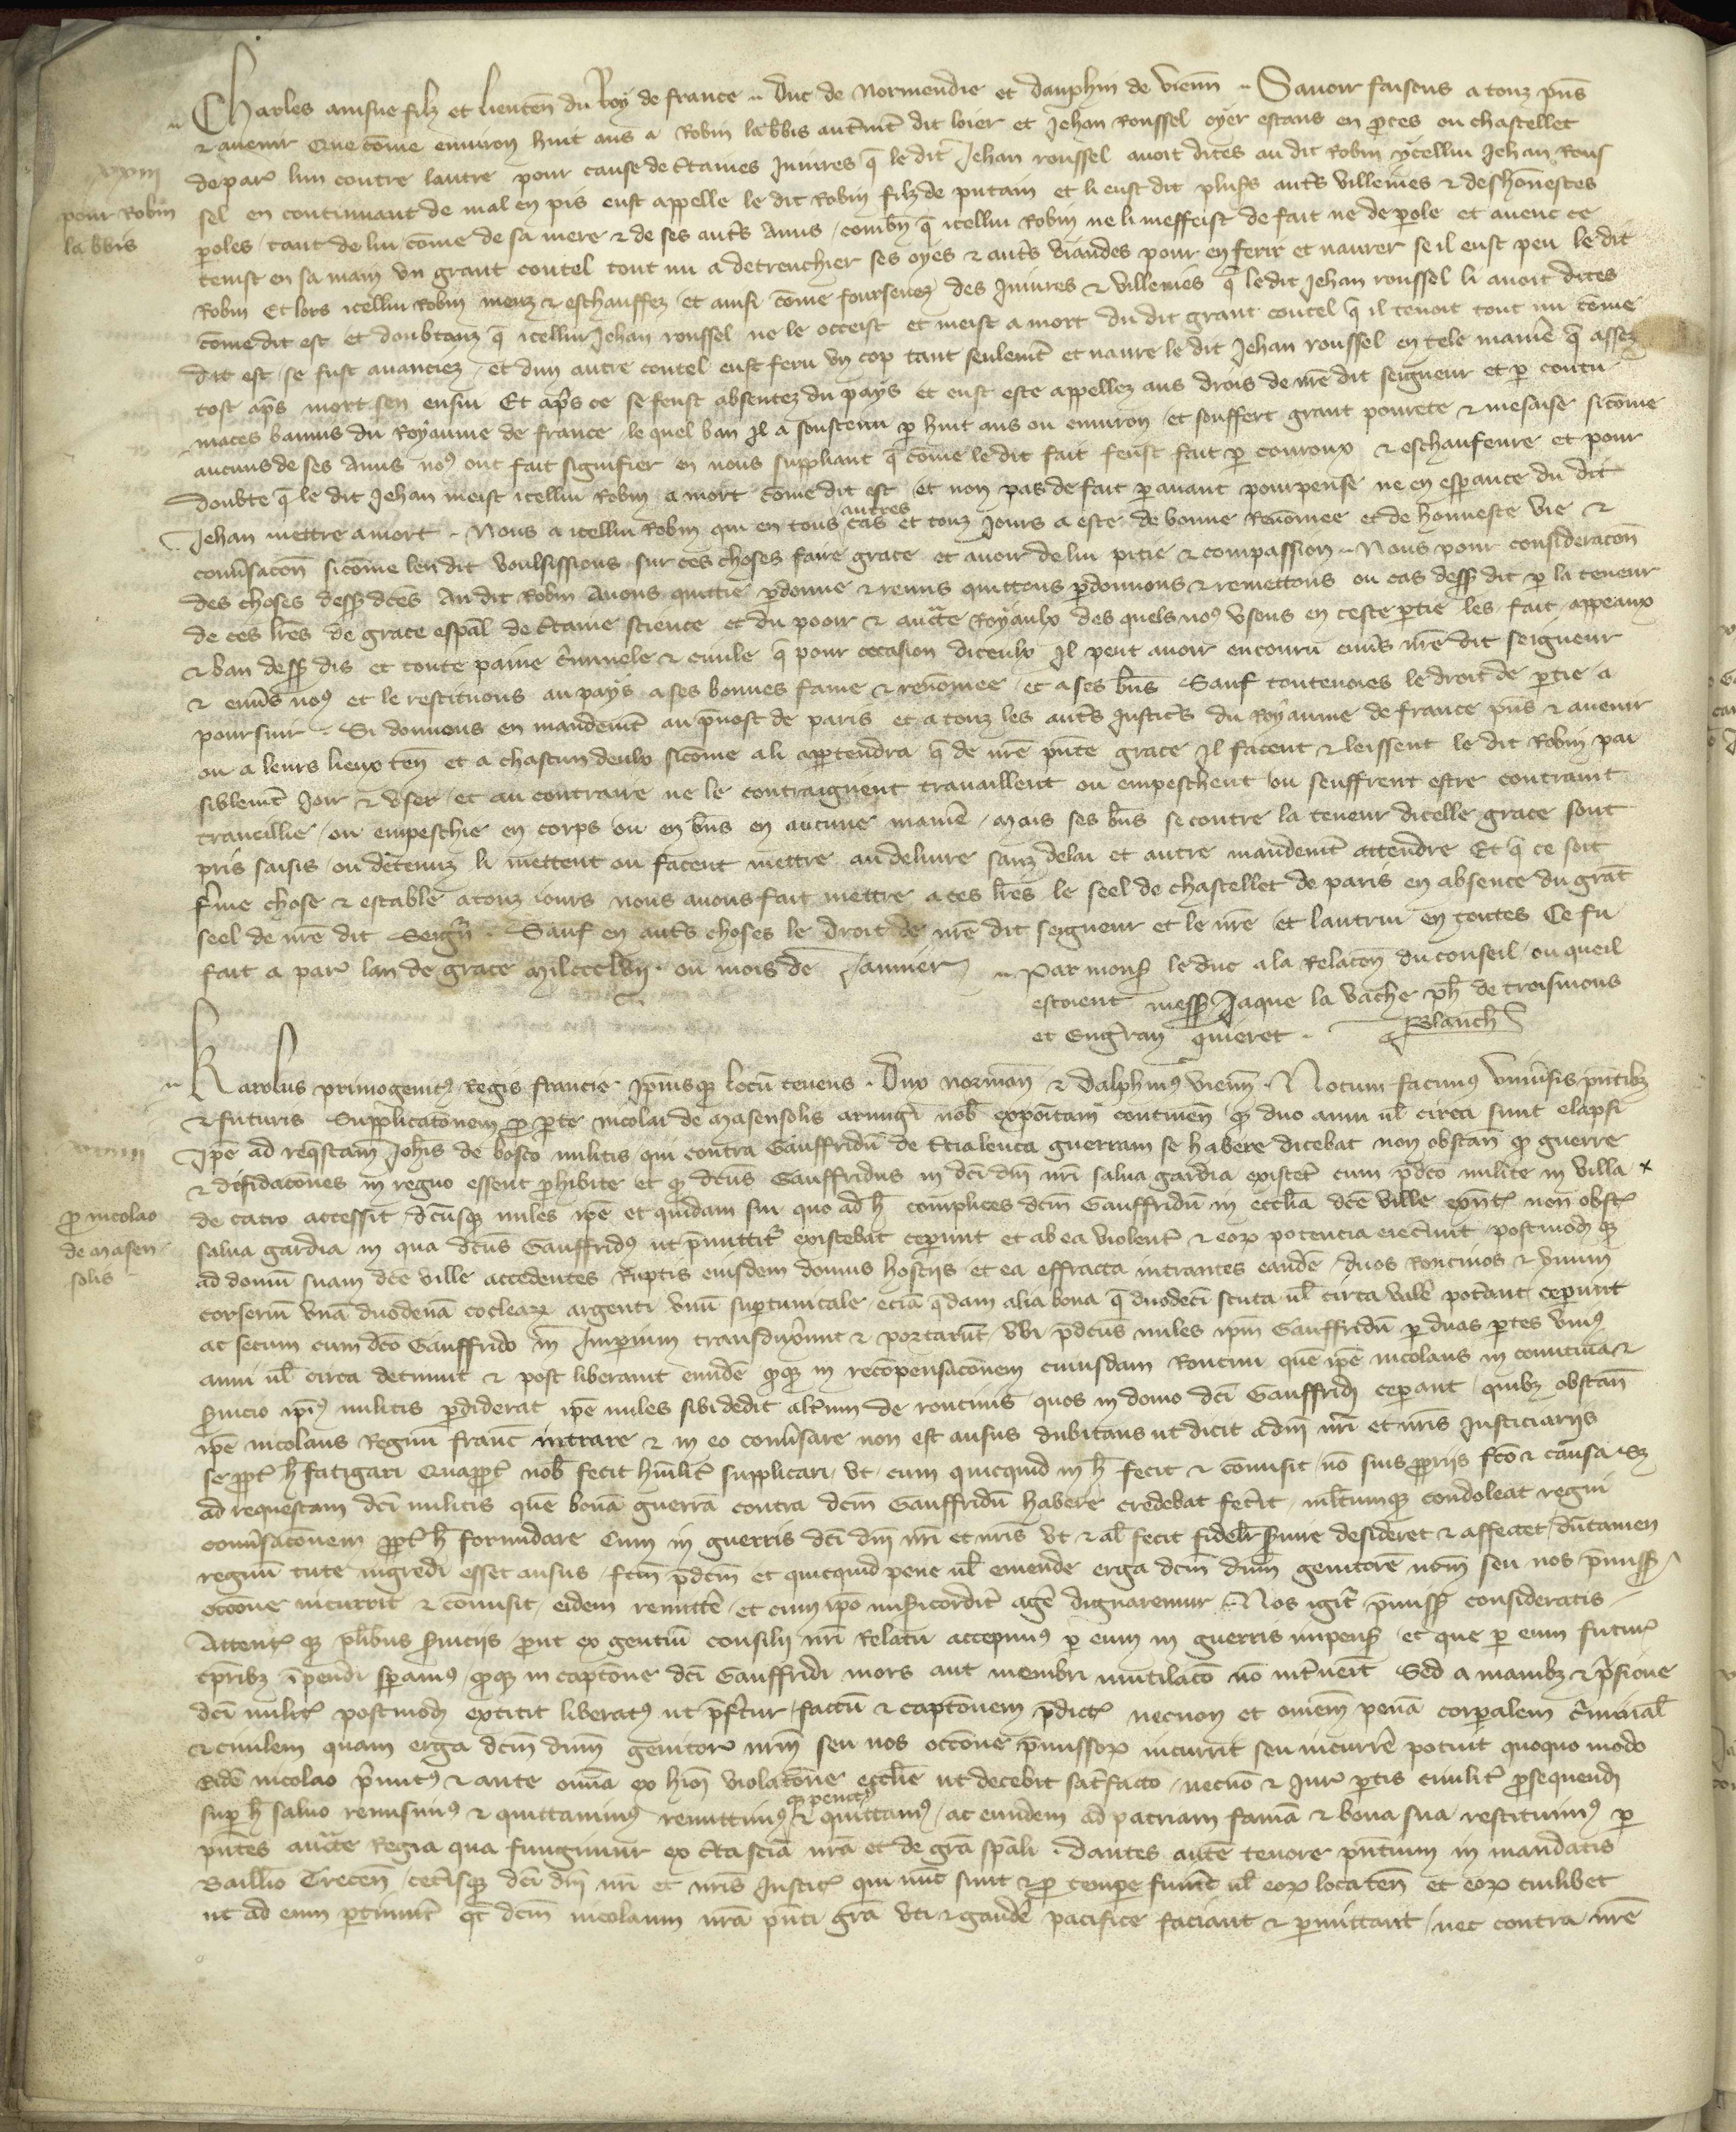 Charles ainsne filz et lieuten du Roy de france .. Duc de Normendie et dauphin de vienn .. Savoir faisons a touz pns
& avenir Que come environ huit ans a Robin labbis autmt dit loier et Jehan Roussel oyer estans en pces ou chastellet
de par lun contre lautre pour cause de ctaines Iniures q le dit Jehan roussel avoit dites au dit Robin ycellui Jehan Rous
xxiii
sel en continuant de mal en pis eust appelle le dit Robin filz de putain et li eust dit plusrs auts villenies & deshonnestes
pour Robin
labbis
poles / tant de lui come de sa mere & de ses auts Amis / combn q icellui Robin ne li meffeist de fait ne de pole et avec ce
tenist en sa main un grant coutel tout nu a detrenchier ses oyes & auts viandes pour en ferir et navrer se il eust peu le dit
Robin Et lors icellui Robin meuz & eschauffez et ainsi come foursenez des Iniures & villenies q le dit Jehan roussel li avoit dites
come dit est et doubtanz q icellui Jehan roussel ne le occeist et meist a mort du dit grant coutel q il tenoit tout nu come
dit est / se fust avanciez / et dun autre coutel eust feru un cop tant seulemt et navre le dit Jehan roussel en tele manie q assez
tost aps mort sen ensui Et aps ce se feust absentez du pays et eust este appellez aus drois de nre dit seigneur et p contu
maces bannis du Royaume de france / le quel ban Il a soustenu p huit ans ou environ / et souffert grant povrete & mesaise sicome
aucuns de ses Amis nos ont fait signifier en nous suppliant q come le dit fait feust fait p courroux & eschaufeure et pour
doubte q le dit Jehan meist icellui Robin a mort come dit est et non pas de fait pavant pourpense ne en espance du dit
Jehan mettre a mort .. Nous a icellui Robin qui en tous autres cas et touz Jours a este de bonne Renomee et de honneste vie &
conusacon sicome len dit voulsissions sur ces choses faire grace et avoir de lui pitie & compassion .. Nous pour consideracon
des choses dess dces Au dit Robin Avons quittie pdonne & remis quittons pdonnons & remettons ou cas dess dit p la teneur
de ces lres de grace espal de ctaine science et du pooir & aucte Royaulx des quels nos usons en ceste ptie les fait appeaux
& ban dess dis et toute paine cminele & civile q pour occasion diceulx Il peut avoir encouru envs nre dit seigneur
& envs nos et le restituons au pays a ses bonnes fame & renomee / et a ses bns Sauf toutevoies le droit de ptie a
poursuir .. Si donnons en mandemt au pvost de paris et a touz les auts Justics du Royaume de france pns & avenir
ou a leurs lieux ten et a chascun deulx sicome a li appartendra q de nre pnte grace Il facent & leissent le dit Robin pai
siblemt Joir & user / et au contraire ne le contraignent travaillent ou empeschent ou seuffrent estre contraint
traveillie / ou empeschie en corps ou en bns en aucune manie / Mais ses bns se contre la teneur dicelle grace sont
pris saisis ou detenuz li mettent ou facent mettre au delivre sanz delai et autre mandemt attendre Et q ce soit
fme chose & estable a touz iours nous avons fait mettre a ces lres le seel de chastellet de paris en absence du grat
seel de nre dit Seignr .. Sauf en auts choses le droit de nre dit seigneur et le nre et lautrui en toutes Ce fu
fait a par lan de grace Mil ccc lvii . ou mois de Janvier .. Par mons le duc a la Relacon du conseil / ou queil
estoient mess Jaque la vache ph de troismons
et Engran quieret . Blanch
Karolus primogenitus Regis francie . Ipiusq locu tenens . Dux norman & dalphinus vienn . Notum facimus universis pntibz
& futuris Supplicatonem p pte Nicolai de Masensolis armigi nob expoitam continen q duo anni ul circa sunt elapsi
xxiiii
Ipe ad reqstam Johis de bosco militis qui contra Gauffridu de guerram se habere dicebat non obstan q guerre
& diffidacones in regno essent phibite et q dcus Gauffridus in dci dni nri salva gardia existet cum pdco milite in villa x
p nicolao
de Masen
solis
de cacro accessit / dcusq miles ipe et quidam sui quo ad h complices dcm Gauffridu in ecclia dce ville exnt non obst
salva gardia in qua dcus Gauffridus ut pmittit existebat cepunt et ab ea violent & eor potencia eiecunt / postmod q
ad domu suam dce ville accedentes Ruptis eiusdem domus hostiis et ea effracta intrantes eande / duos Roncinos & unum
corseriu una duodena coclear argenti unu suptunicale / ecia qdam alia bona q duodeci scuta ul circa vale potant cepunt
ac secum cum dco Gauffrido in Imperium transduxunt & portarut / ubi pdcus miles ipm Gauffridu p duas ptes unius
anni ul circa detinuit & post liberavit eunde / quq in recompensaconem cuiusdam Roncini que ipe nicolaus in comitiva &
servicio ipius militis pdiderat ipe miles sibi dedit altum de roncinis quos in domo dci Gauffridi cepant / quibz obstan
ipe nicolaus Regnu franc intrare & in eo conusare non est ausus dubitans ut dicit a dni nri et nris Justiciariis
se ppt h fatigari Quappt nob fecit humilit supplicari / ut / cum quicquid in h fecit & comisit / no suis ppriis fco & causa sz
ad requestam dci militis que bona guerra contra dcm Gauffridu habere credebat fecit / multumq condoleat regni
conusaconem ppt h formidare Cum in guerris dci dni nri et nris ut & al fecit fidelit servire desideret & affectet / dutamen
regnu tute ingredi esset ausus / fcm pdcm et quicquid pene ul emende erga dcm dnm genitore nrm seu nos pmiss
occone incurrit & comisit / eidem remitte / et cum ipo misicordit age dignaremur . Nos igit pmiss consideratis
Attent q plibus serviciis put ex gentiu consilii nri Relatu accepimus p eum in guerris impens / et que p eum futur
tpribz ipendi spamus quq in captone dci Gauffridi mors aut membri mutilaco no intveit Sed a manibz & psione
dci milit postmod extitit liberatus ut pftur / factu & captonem pdict necnon et omnem pena corporalem criminal
& civilem quam erga dcm dnm genitore nrm seu nos occone pmissor incurrit seu incurre potuit quoquo modo
Eide nicolao pmitus & ante omia ex hion violatone ecclie ut decebit satfacto / necno & Jure ptis civilit psequend
sup h salvo remisimus & quittavimus remittimus q penitus & quittamus / ac eundem ad patriam fama & bona sua restituimus p
pntes aucte Regia qua fungimur ex cta scia nra et de gra spali . Dantes aute tenore pntium in mandatis
Baillivo Trecen / cetisq dci dni nri et nris Justic qui nuc sunt & p tempe fuint ul eor loca ten et eor cuilibet
ut ad eum ptinuit qt dcm nicolaum nra pnti gra uti & gaude pacifice faciant & pmittant / nec contra nre